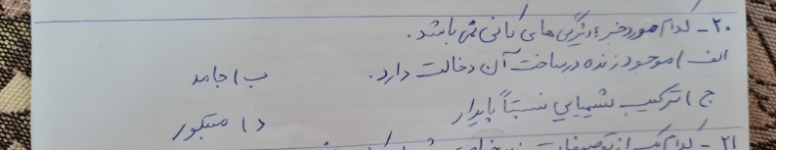 ۲۰ - کدام مورد جزء ویژگی های کانی نمی باشد.
الف) موجود زنده در ساخت آن دخالت دارد. ب) جامد
ج) ترکیب شیمیایی نسبتاً پایدار د) متبلور
۲۱ - کدام یک از